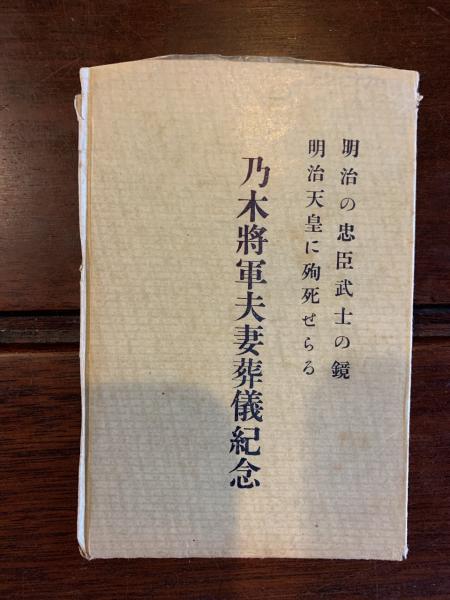 明治の忠臣武士の鏡
明治天皇に殉死せらる
乃木將軍夫妻葬儀紀念